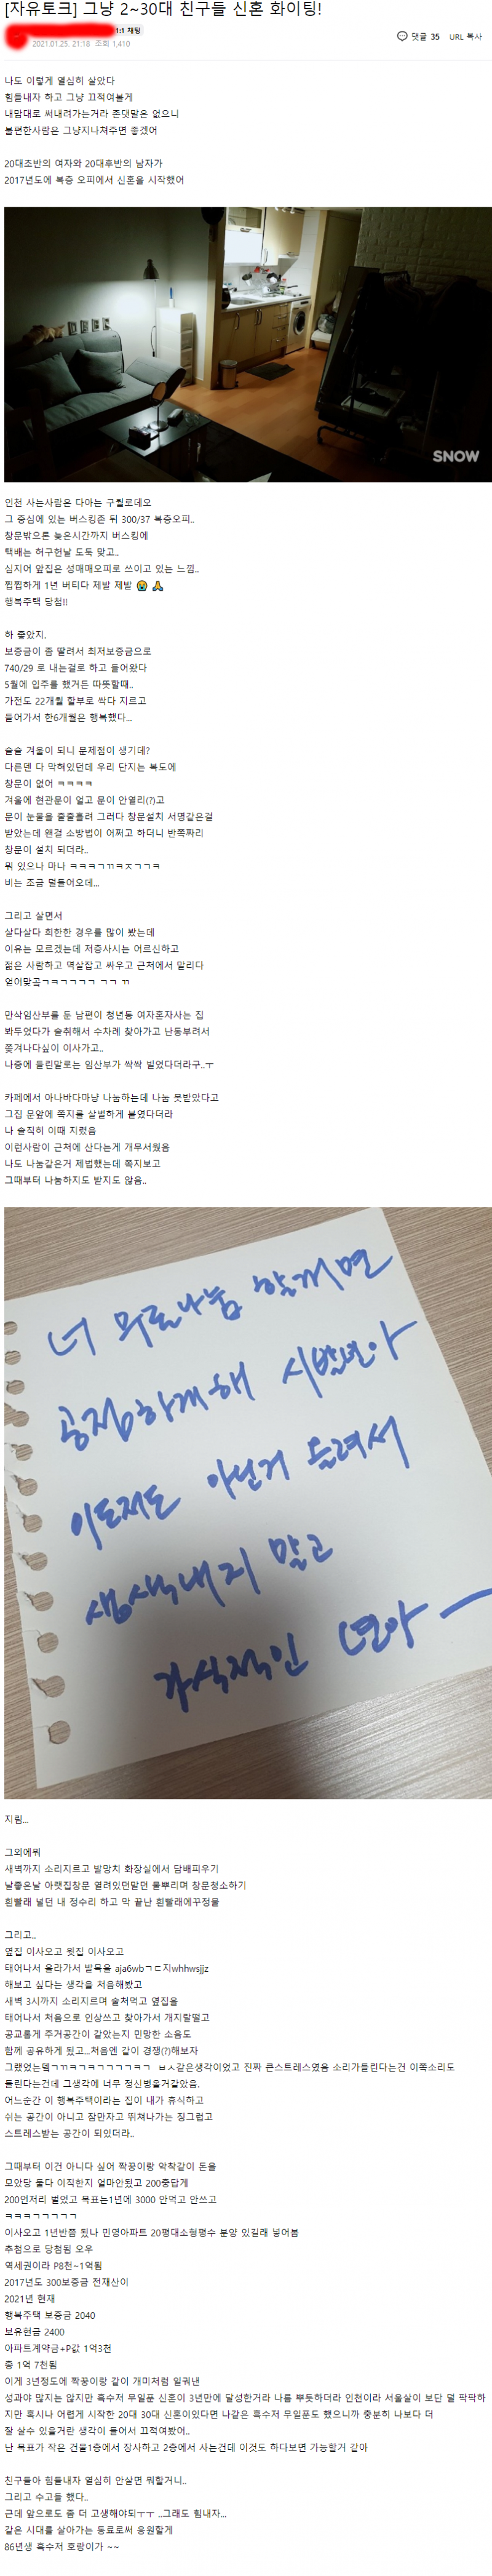 [자유토크] 그냥 2~30대 친구들 신혼 화이팅!
1:1 채팅
2021.01.25. 21:18 조회 1,410
댓글 35 URL 복사
나도 이렇게 열심히 살았다
힘들내자 하고 그냥 끄적여볼게
내맘대로 써내려가는거라 존댓말은 없으니
불편한사람은 그냥지나쳐주면 좋겠어
20대초반의 여자와 20대후반의 남자가
2017년도에 복층 오피에서 신혼을 시작했어
SNOW
인천 사는사람은 다아는 구월로데오
그 중심에 있는 버스킹존 뒤 300/37 복층오피..
창문밖으론 늦은시간까지 버스킹에
택배는 허구헌날 도둑 맞고..
심지어 앞집은 성매매오피로 쓰이고 있는 느낌..
찝찝하게 1년 버티다 제발 제발 😭 🙏
행복주택 당첨!!
하 좋았지.
보증금이 좀 딸려서 최저보증금으로
740/29 로 내는걸로 하고 들어왔다
5월에 입주를 했거든 따뜻할때..
가전도 22개월 할부로 싹다 지르고
들어가서 한6개월은 행복했다...
슬슬 겨울이 되니 문제점이 생기데?
다른덴 다 막혀있던데 우리 단지는 복도에
창문이 없어 ㅋㅋㅋㅋ
겨울에 현관문이 얼고 문이 안열리(?)고
문이 눈물을 줄줄흘려 그러다 창문설치 서명같은걸
받았는데 왠걸 소방법이 어쩌고 하더니 반쪽짜리
창문이 설치 되더라..
뭐 있으나 마나 ㅋㅋㅋㄱㄲㅋㅈㄱㄱㅋ
비는 조금 덜들어오데...
그리고 살면서
살다살다 희한한 경우를 많이 봤는데
이유는 모르겠는데 저층사시는 어르신하고
젊은 사람하고 멱살잡고 싸우고 근처에서 말리다
얻어맞곸ㄱㅋㄱㄱㄱㄱ ㄱㄱ ㄲ
만삭임산부를 둔 남편이 청년동 여자혼자사는 집
봐두었다가 술취해서 수차례 찾아가고 난동부려서
쫒겨나다싶이 이사가고..
나중에 들린말로는 임산부가 싹싹 빌었다더라구..ㅜ
카페에서 아나바다마냥 나눔하는데 나눔 못받았다고
그집 문앞에 쪽지를 살벌하게 붙였다더라
나 솔직히 이때 지렸음
이런사람이 근처에 산다는게 개무서웠음
나도 나눔같은거 제법했는데 쪽지보고
그때부터 나눔하지도 받지도 않음..
너 무료나눔 할꺼면
공정하게해 시발년아
이도저도 아닌거 들려서
생색내지 말고
가식적인 년아 ㅡ
지림...
그외에뭐
새벽까지 소리지르고 발망치 화장실에서 담배피우기
날좋은날 아랫집창문 열려있던말던 물뿌리며 창문청소하기
흰빨래 널던 내 정수리 하고 막 끝난 흰빨래에꾸정물
그리고..
옆집 이사오고 윗집 이사오고
태어나서 올라가서 발목을 aja6wbㄱㄷ지whhwsjjz
해보고 싶다는 생각을 처음해봤고
새벽 3시까지 소리지르며 술처먹고 옆집을
태어나서 처음으로 인상쓰고 찾아가서 개지랄떨고
공교롭게 주거공간이 같았는지 민망한 소음도
함께 공유하게 됬고...처음엔 같이 경쟁(?)해보자
그랬었는뎈ㄱㄲㅋㄱㅋㄱㄱㄱㄱㅋㄱ ㅂㅅ같은생각이었고 진짜 큰스트레스였음 소리가들린다는건 이쪽소리도
들린다는건데 그생각에 너무 정신병올거같았음.
어느순간 이 행복주택이라는 집이 내가 휴식하고
쉬는 공간이 아니고 잠만자고 뛰쳐나가는 징그럽고
스트레스받는 공간이 되있더라..
그때부터 이건 아니다 싶어 짝꿍이랑 악착같이 돈을
모았당 둘다 이직한지 얼마안됬고 200충당게
200언저리 벌었고 목표는1년에 3000 안먹고 안쓰고
ㅋㅋㅋㄱㄱㄱㄱㄱ
이사오고 1년반쯤 됬나 민영아파트 20평대소형평수 분양 있길래 넣어봄
추첨으로 당첨됨 오우
역세권이라 P8천~1억됨
2017년도 300보증금 전재산이
2021년 현재
행복주택 보증금 2040
보유현금 2400
아파트계약금+P값 1억3천
총 1억 7천됨
이게 3년정도에 짝꿍이랑 같이 개미처럼 일궈낸
성과야 많지는 않지만 흑수저 무일푼 신혼이 3년만에 달성한거라 나름 뿌듯하더라 인천이라 서울살이 보단 덜 팍팍하
지만 혹시나 어렵게 시작한 20대 30대 신혼이있다면 나같은 흑수저 무일푼도 했으니까 충분히 나보다 더
잘 살수 있을거란 생각이 들어서 끄적여봤어..
난 목표가 작은 건물1층에서 장사하고 2층에서 사는건데 이것도 하다보면 가능할거 같아
친구들아 힘들내자 열심히 안살면 뭐할거니..
그리고 수고들 했다..
근데 앞으로도 좀 더 고생해야되ㅜㅜ ..그래도 힘내자...
같은 시대를 살아가는 동료로써 응원할게
86년생 흑수저 호랑이가 ~~